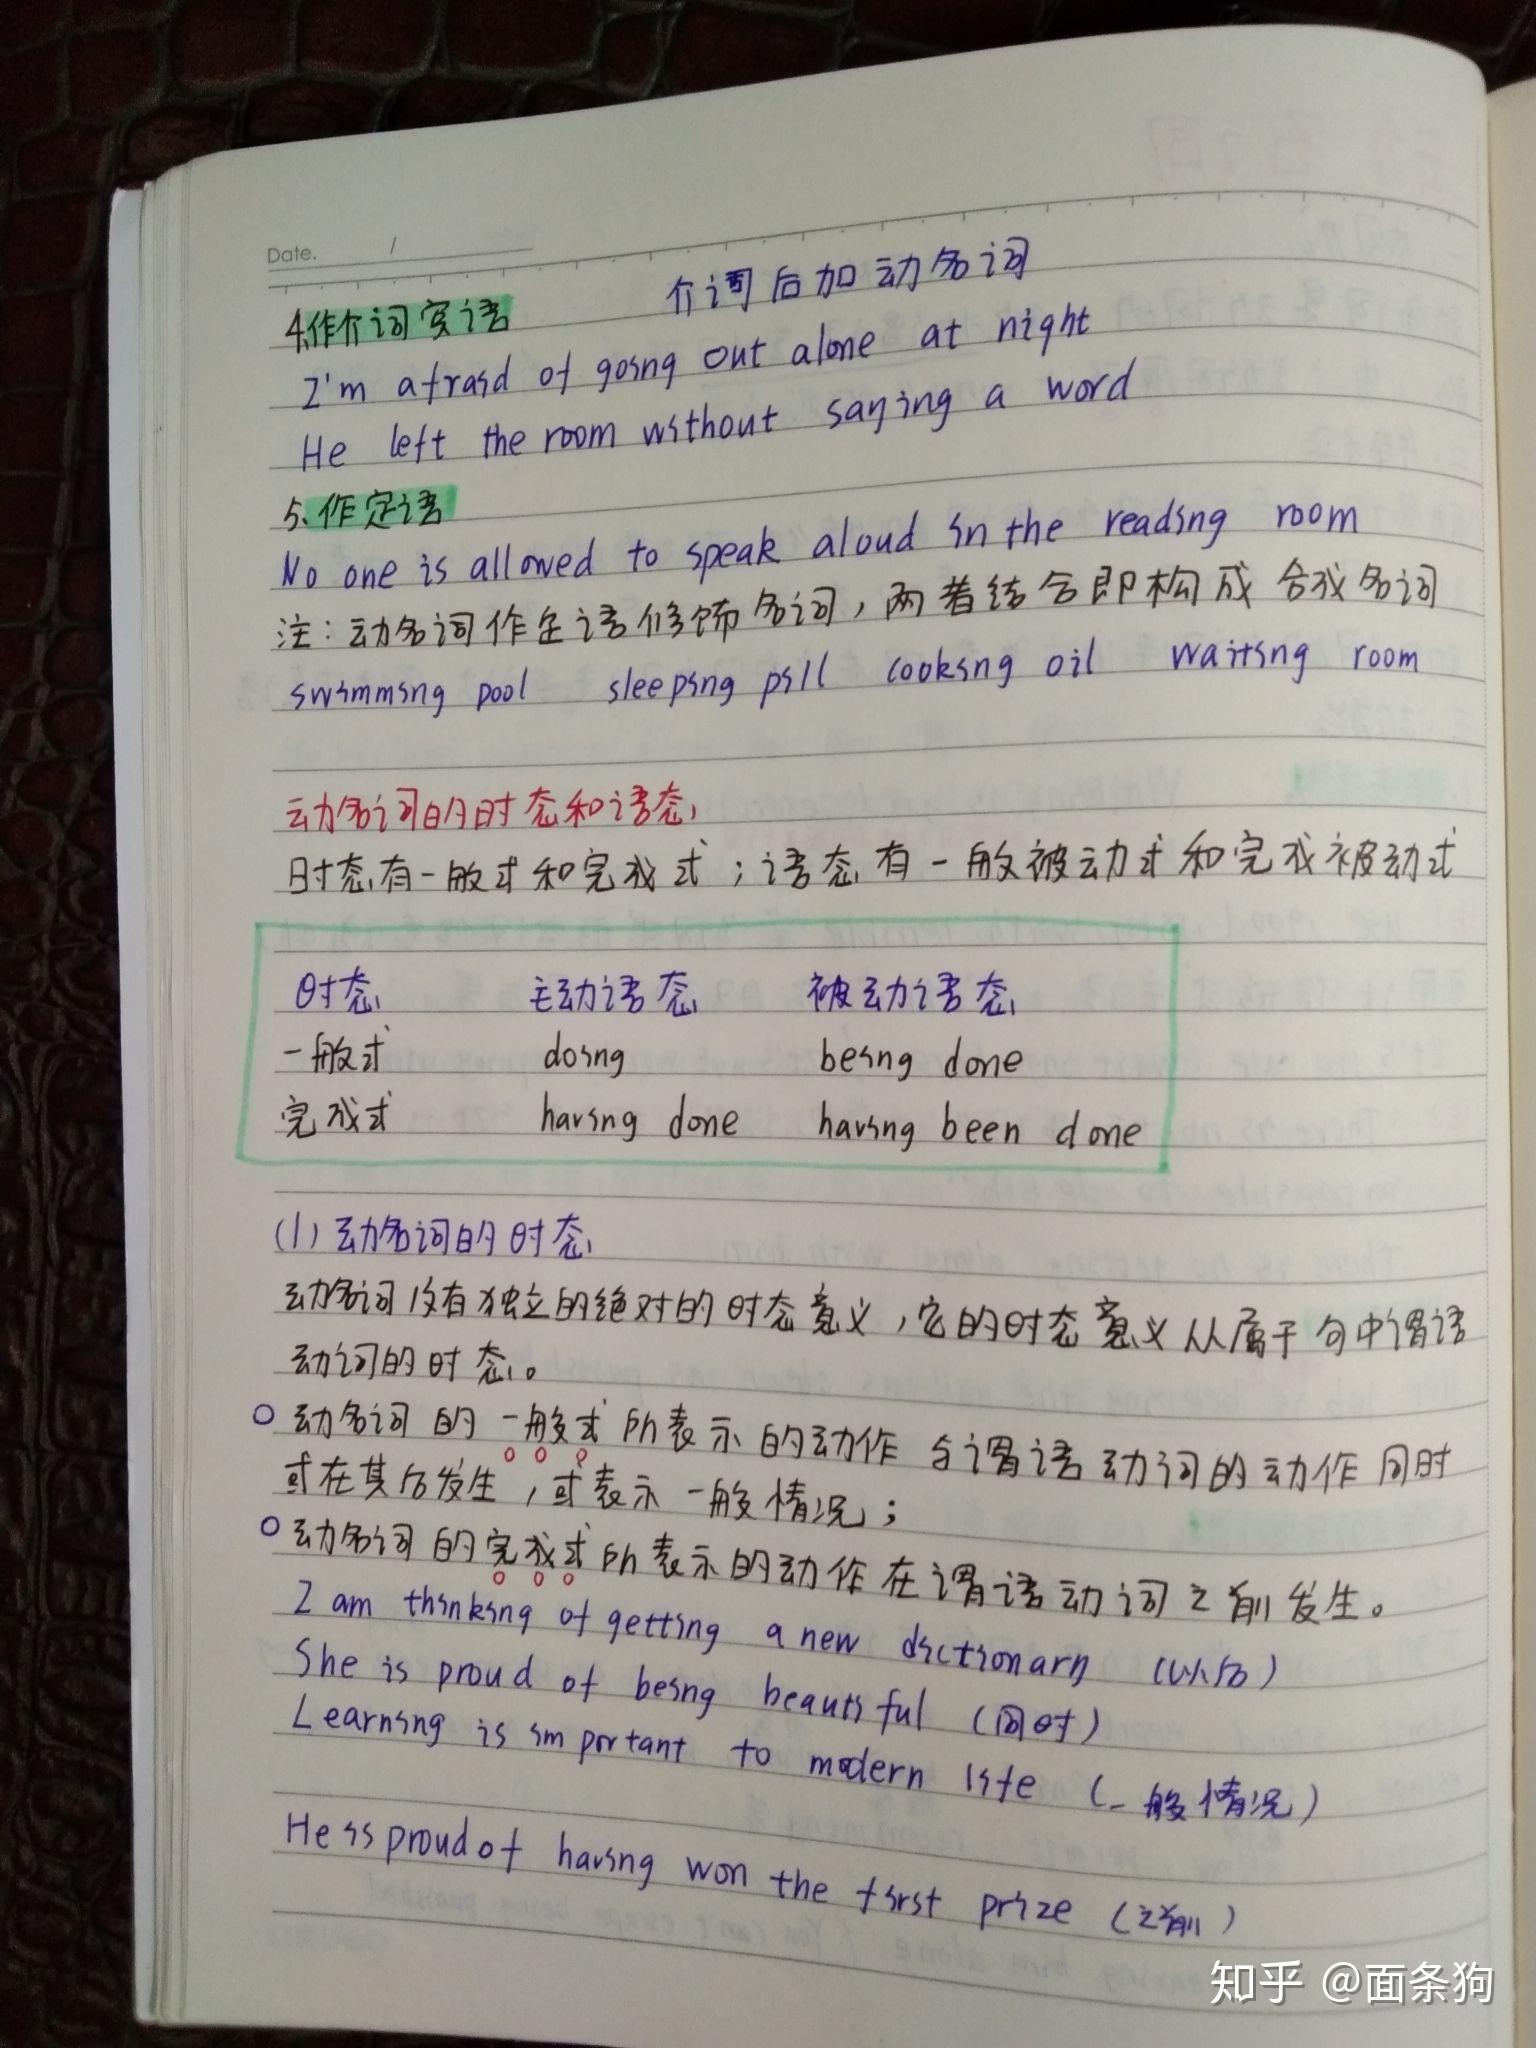 Date. /
4.作介词宾语 介词后加动名词
I'm afraid of going out alone at night
He left the room without saying a word
5.作定语
No one is allowed to speak aloud in the reading room
注：动名词作定语修饰名词，两者结合即构成合成名词
swimming pool sleeping pill cooking oil waiting room
动名词的时态和语态
时态有一般式和完成式；语态有一般被动式和完成被动式
时态 主动语态 被动语态
一般式 doing being done
完成式 having done having been done
(1) 动名词的时态
动名词没有独立的绝对的时态意义，它的时态意义从属于句中谓语
动词的时态。
○ 动名词的一般式所表示的动作与谓语动词的动作同时
或在其后发生，或表示一般情况；
○ 动名词的完成式所表示的动作在谓语动词之前发生。
I am thinking of getting a new dictionary (以后)
She is proud of being beautiful (同时)
Learning is important to modern life (一般情况)
He is proud of having won the first prize (之前)
知乎 @面条狗